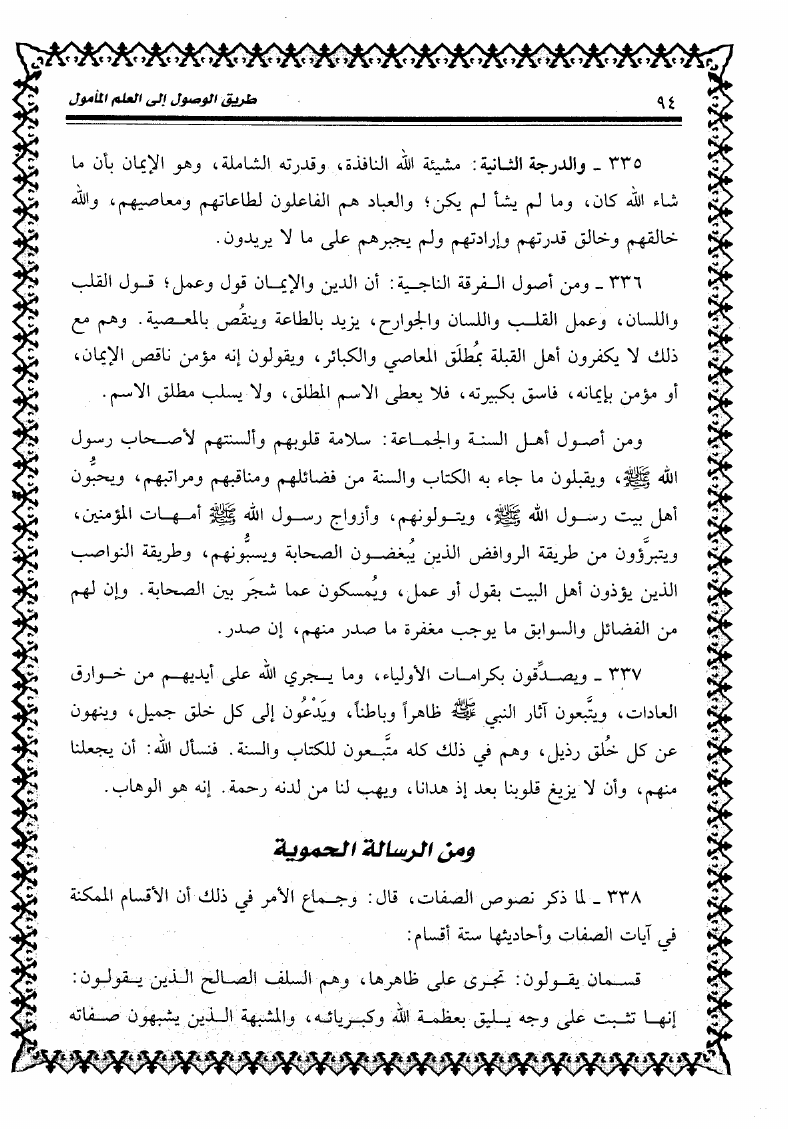 ٩٤ طريق الوصول إلى العلم المأمول
٣٣٥ ـ والدرجة الثانية: مشيئة الله النافذة، وقدرته الشاملة، وهو الإيمان بأن ما
شاء الله كان، وما لم يشأ لم يكن؛ والعباد هم الفاعلون لطاعاتهم ومعاصيهم، والله
خالقهم وخالق قدرتهم وإرادتهم ولم يجبرهم على ما لا يريدون.
٣٣٦ ـ ومن أصول الفرقة الناجية: أن الدين والإيمان قول وعمل؛ قول القلب
واللسان، وعمل القلب واللسان والجوارح، يزيد بالطاعة وينقُص بالمعصية. وهم مع
ذلك لا يكفرون أهل القبلة بمُطلَق المعاصي والكبائر، ويقولون إنه مؤمن ناقص الإيمان،
أو مؤمن بإيمانه، فاسق بكبيرته، فلا يعطى الاسم المطلق، ولا يسلب مطلق الاسم.
ومن أصول أهل السنة والجماعة: سلامة قلوبهم وألسنتهم لأصحاب رسول
الله ﷺ، ويقبلون ما جاء به الكتاب والسنة من فضائلهم ومناقبهم ومراتبهم، ويحبُّون
أهل بيت رسول الله ﷺ، ويتولونهم، وأزواج رسول الله ﷺ أمهات المؤمنين،
ويتبرَّؤون من طريقة الروافض الذين يُبغضون الصحابة ويسبُّونهم، وطريقة النواصب
الذين يؤذون أهل البيت بقول أو عمل، ويُمسكون عما شجَر بين الصحابة. وإن لهم
من الفضائل والسوابق ما يوجب مغفرة ما صدر منهم، إن صدر.
٣٣٧ ـ ويصدِّقون بكرامات الأولياء، وما يجري الله على أيديهم من خوارق
العادات، ويتَّبعون آثار النبي ﷺ ظاهراً وباطناً، ويَدْعُون إلى كل خلق جميل، وينهون
عن كل خُلق رذيل، وهم في ذلك كله متَّبعون للكتاب والسنة. فنسأل الله: أن يجعلنا
منهم، وأن لا يزيغ قلوبنا بعد إذ هدانا، ويهب لنا من لدنه رحمة. إنه هو الوهاب.
ومن الرسالة الحموية
٣٣٨ ـ لما ذكر نصوص الصفات، قال: وجماع الأمر في ذلك أن الأقسام الممكنة
في آيات الصفات وأحاديثها ستة أقسام:
قسمان يقولون: تجرى على ظاهرها، وهم السلف الصالح الذين يقولون:
إنها تثبت على وجه يليق بعظمة الله وكبريائه، والمشبهة الذين يشبهون صفاته